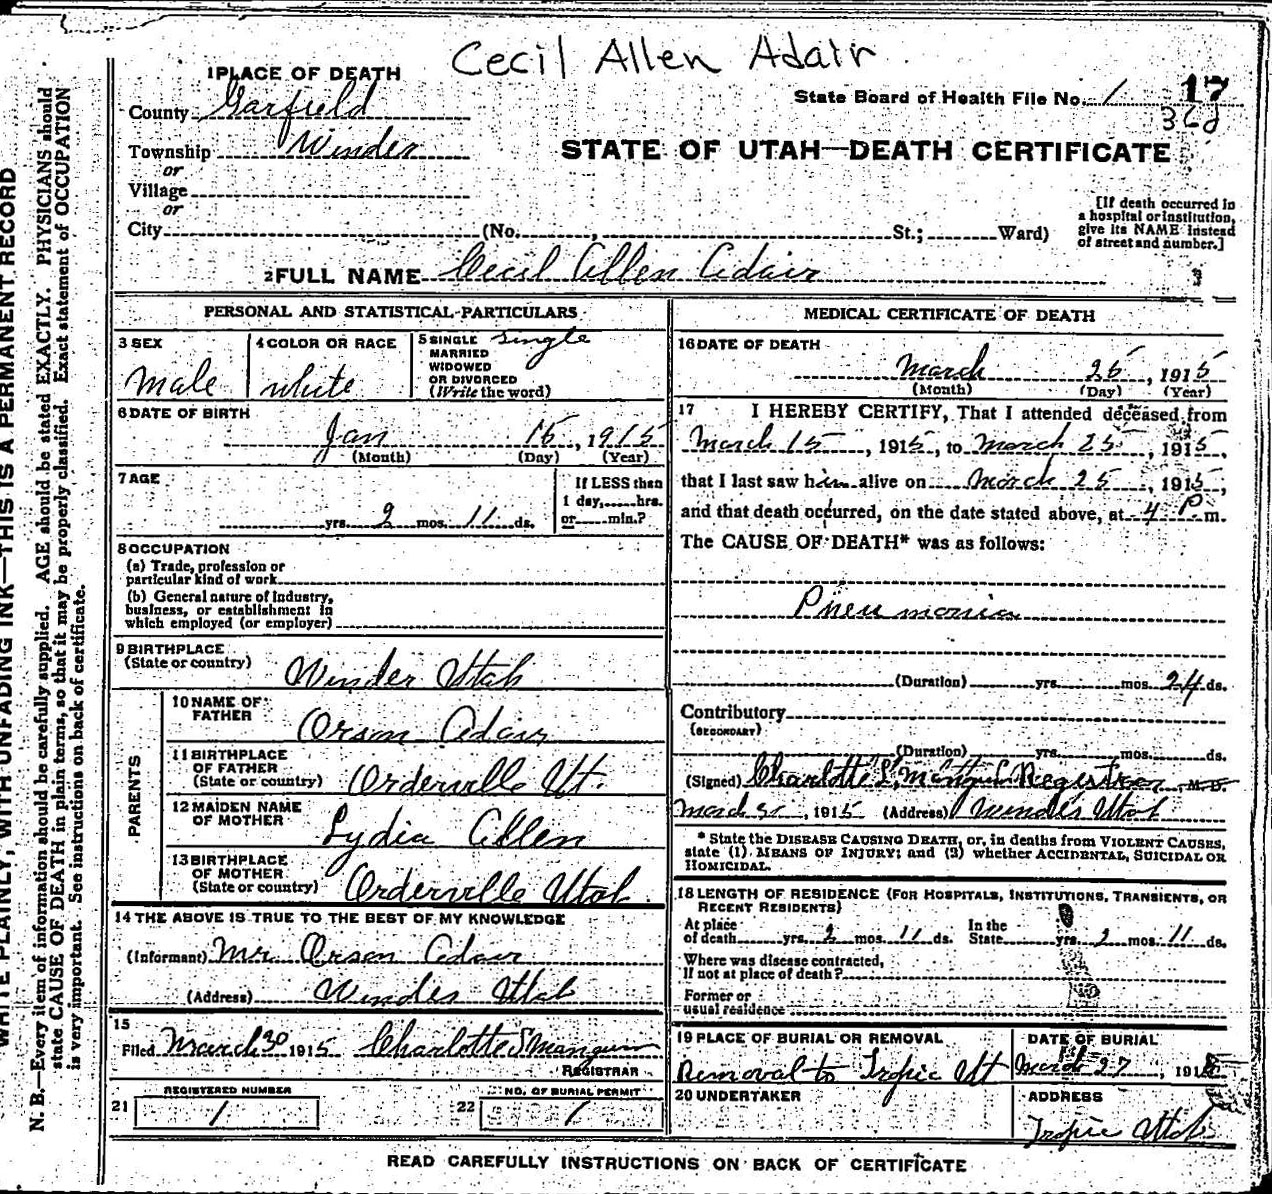 Cecil Allen Adair
1 PLACE OF DEATH
County Garfield
State Board of Health File No. 1 17
362
Township Winder
or
STATE OF UTAH—DEATH CERTIFICATE
Village
or
City (No. , St.; Ward)
[If death occurred in
a hospital or institution,
give its NAME instead
of street and number.]
2 FULL NAME Cecil Allen Adair
3
PERSONAL AND STATISTICAL PARTICULARS
3 SEX
Male
4 COLOR OR RACE
white
5 SINGLE
MARRIED
WIDOWED
OR DIVORCED
(Write the word)
Single
6 DATE OF BIRTH
Jan 15, 1915
(Month) (Day) (Year)
7 AGE
yrs. 2 mos. 11 ds.
If LESS than
1 day, hrs.
or min.?
8 OCCUPATION
(a) Trade, profession or
particular kind of work
(b) General nature of Industry,
business, or establishment in
which employed (or employer)
9 BIRTHPLACE
(State or country) Winder Utah
PARENTS
10 NAME OF
FATHER Orson Adair
11 BIRTHPLACE
OF FATHER
(State or country) Orderville Ut.
12 MAIDEN NAME
OF MOTHER Lydia Allen
13 BIRTHPLACE
OF MOTHER
(State or country) Orderville Utah.
14 THE ABOVE IS TRUE TO THE BEST OF MY KNOWLEDGE
(Informant) Mr. Orson Adair
(Address) Winder Utah
15
Filed March 30 1915 Charlotte S Mangum
REGISTRAR
REGISTERED NUMBER
21 1
NO. OF BURIAL PERMIT
22 1
MEDICAL CERTIFICATE OF DEATH
16 DATE OF DEATH
March 25, 1915
(Month) (Day) (Year)
17 I HEREBY CERTIFY, That I attended deceased from
March 15, 1915, to March 25, 1915,
that I last saw him alive on March 25, 1915,
and that death occurred, on the date stated above, at 4 P m.
The CAUSE OF DEATH* was as follows:
Pneumonia
(Duration) yrs. mos. 24 ds.
Contributory
(SECONDARY)
(Duration) yrs. mos. ds.
(Signed) Charlotte S. Mangum Registrar M. D.
March, 1915 (Address) Winder Utah
* State the DISEASE CAUSING DEATH, or, in deaths from VIOLENT CAUSES,
state (1) MEANS OF INJURY; and (3) whether ACCIDENTAL, SUICIDAL OR
HOMICIDAL.
18 LENGTH OF RESIDENCE (FOR HOSPITALS, INSTITUTIONS, TRANSIENTS, OR
RECENT RESIDENTS)
At place
of death yrs. 2 mos. 11 ds.
In the
State yrs. 2 mos. 11 ds.
Where was disease contracted,
If not at place of death?
Former or
usual residence
19 PLACE OF BURIAL OR REMOVAL
Removal to Tropic Ut
DATE OF BURIAL
March 27, 191
20 UNDERTAKER
ADDRESS
Tropic Utah
READ CAREFULLY INSTRUCTIONS ON BACK OF CERTIFICATE
WRITE PLAINLY, WITH UNFADING INK—THIS IS A PERMANENT RECORD
N. B.—Every item of information should be carefully supplied. AGE should be stated EXACTLY. PHYSICIANS should
state CAUSE OF DEATH in plain terms, so that it may be properly classified. Exact statement of OCCUPATION
is very important. See instructions on back of certificate.